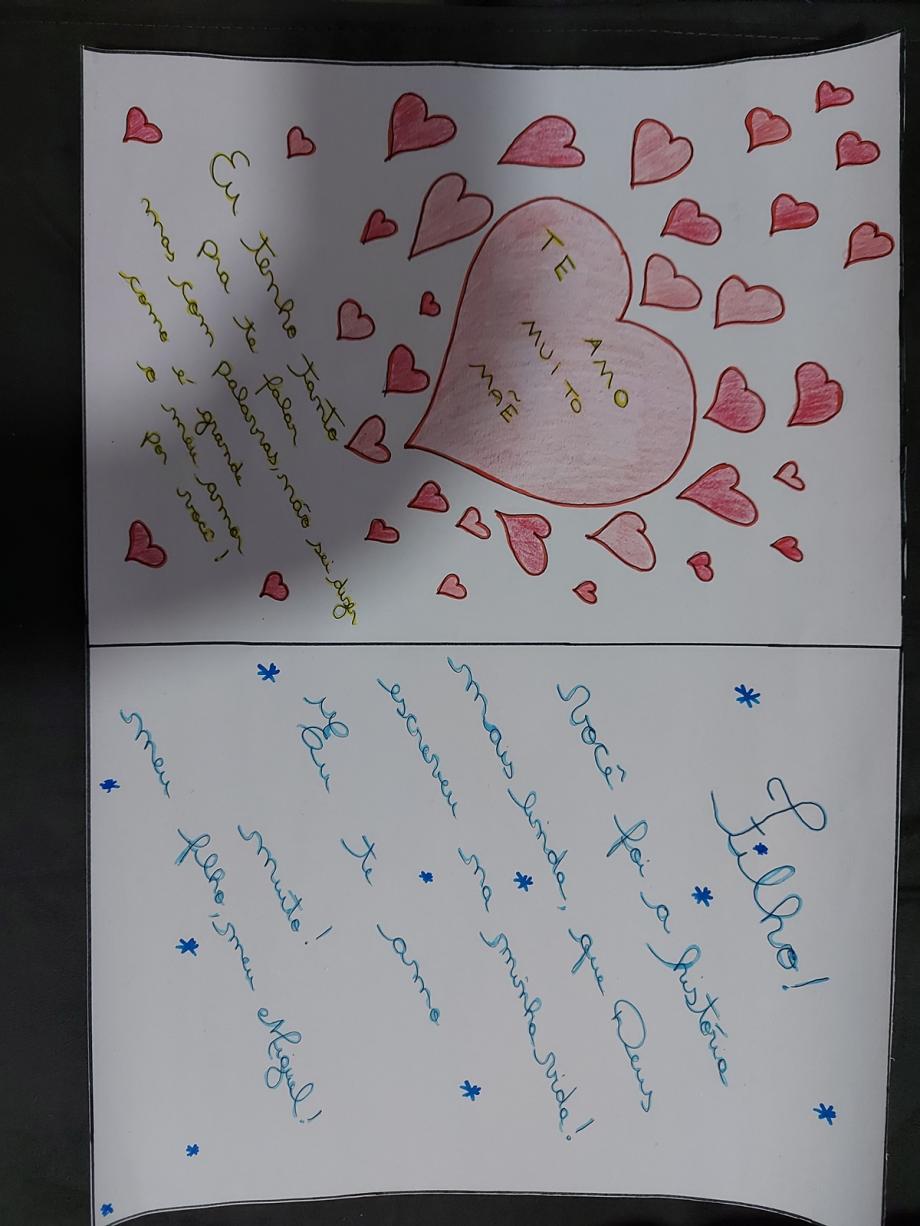 TE
AMO
MUITO
MÃE
Eu tenho tanto
pra te falar
mas com palavras, não sei dizer
como é grande
o meu amor
por você!
Filho!
Você foi a história
mais linda, que Deus
escreveu na minha vida!
Eu te amo
muito!
meu filho, meu Miguel!